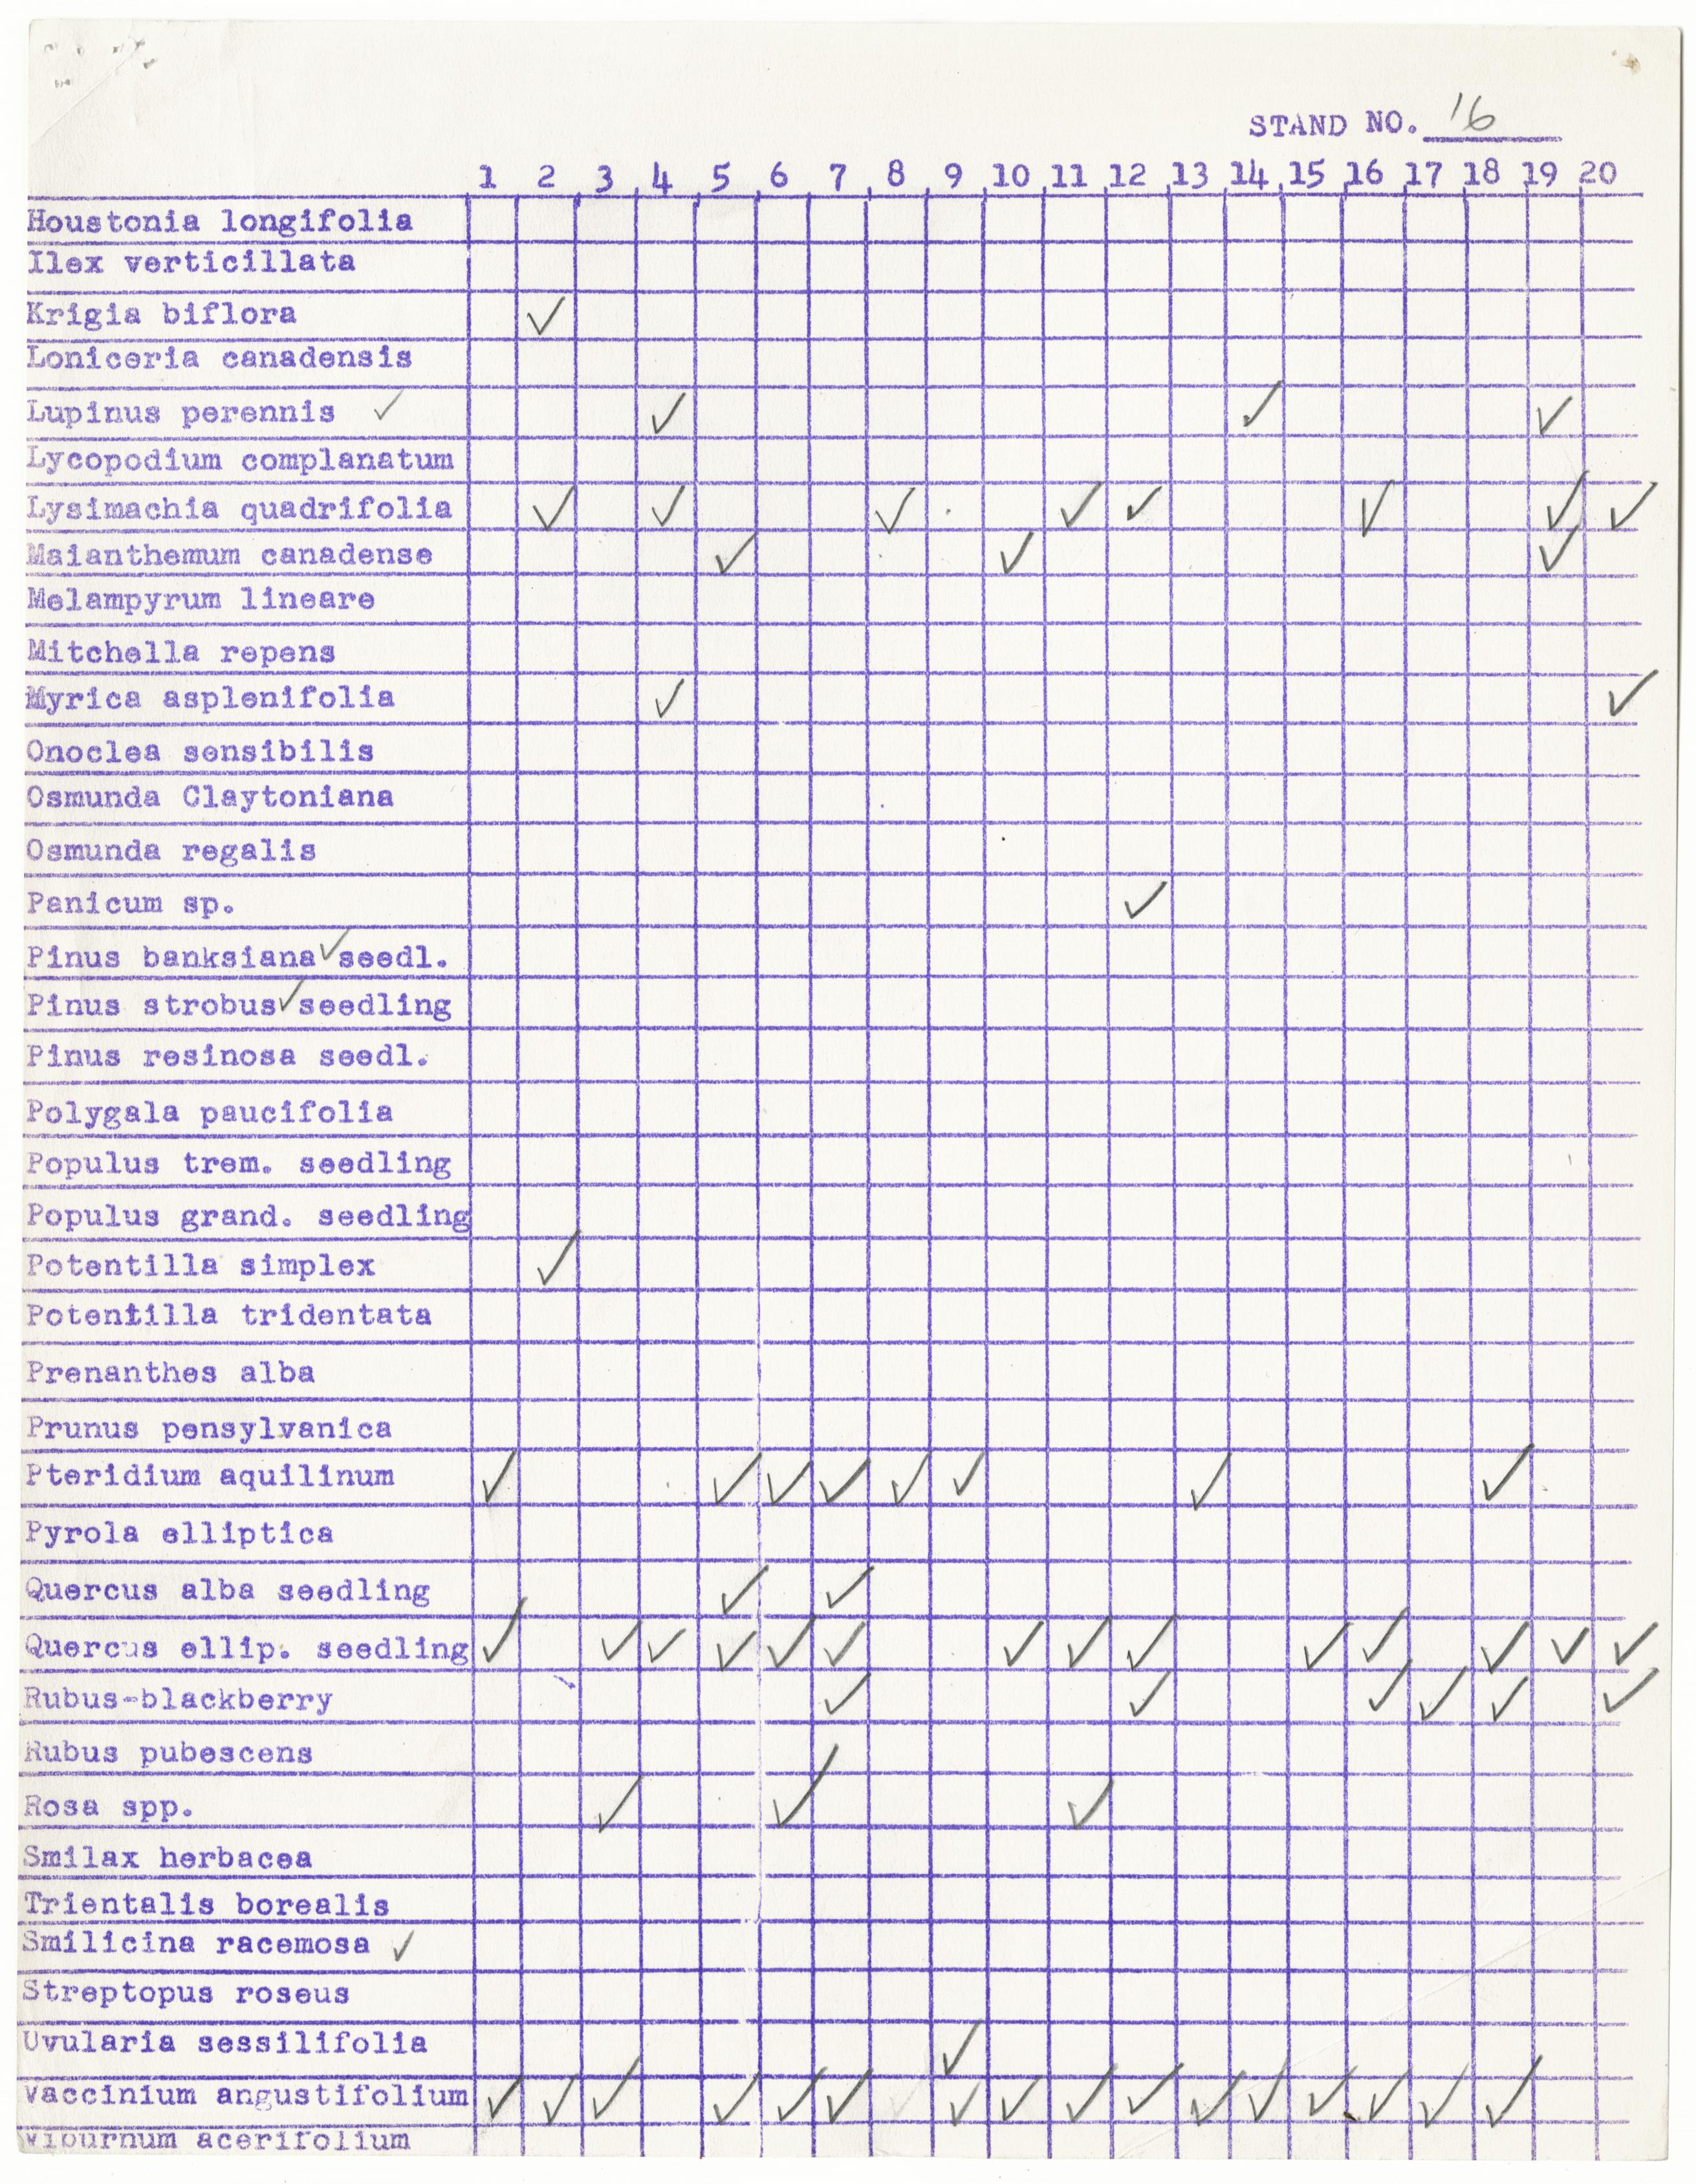 STAND NO. 16
1 2 3 4 5 6 7 8 9 10 11 12 13 14 15 16 17 18 19 20
Houstonia longifolia
Ilex verticillata
Krigia biflora ✓
Loniceria canadensis
Lupinus perennis ✓ ✓ ✓ ✓
Lycopodium complanatum
Lysimachia quadrifolia ✓ ✓ ✓ ✓ ✓ ✓ ✓ ✓
Maianthemum canadense ✓ ✓ ✓
Melampyrum lineare
Mitchella repens
Myrica asplenifolia ✓ ✓
Onoclea sensibilis
Osmunda Claytoniana
Osmunda regalis
Panicum sp. ✓
Pinus banksiana ✓ seedl.
Pinus strobus ✓ seedling
Pinus resinosa seedl.
Polygala paucifolia
Populus trem. seedling
Populus grand. seedling
Potentilla simplex ✓
Potentilla tridentata
Prenanthes alba
Prunus pensylvanica
Pteridium aquilinum ✓ ✓ ✓ ✓ ✓ ✓ ✓ ✓
Pyrola elliptica
Quercus alba seedling ✓ ✓
Quercus ellip. seedling ✓ ✓ ✓ ✓ ✓ ✓ ✓ ✓ ✓ ✓ ✓ ✓ ✓ ✓
Rubus-blackberry ✓ ✓ ✓ ✓ ✓ ✓
Rubus pubescens
Rosa spp. ✓ ✓ ✓
Smilax herbacea
Trientalis borealis
Smilicina racemosa ✓
Streptopus roseus
Uvularia sessilifolia ✓
Vaccinium angustifolium ✓ ✓ ✓ ✓ ✓ ✓ ✓ ✓ ✓ ✓ ✓ ✓ ✓ ✓ ✓ ✓
Viburnum acerifolium